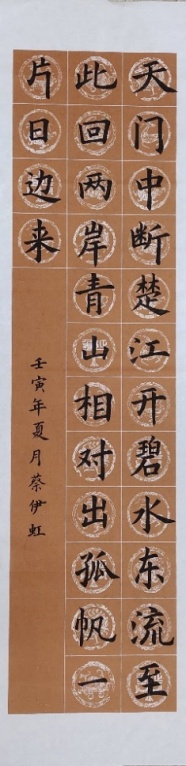 天门中断楚江开碧水东流至
此回两岸青山相对出孤帆一
片日边来
壬寅年夏月蔡伊虹